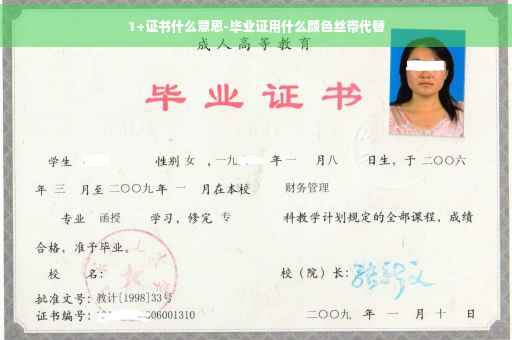 1+证书什么意思-毕业证用什么颜色丝带代替
成人高等教育
毕业证书
学生 性别 女 ,一九 年 一 月八 日生，于 二〇〇六
年 三 月至 二〇〇九 年 一 月在本校 财务管理
专业 函授 学习，修完 专 科教学计划规定的全部课程，成绩
合格，准予毕业。
校 名： 校（院）长：
批准文号：教计[1998]33号
证书编号： 06001310 二〇〇九 年 一 月 十 日